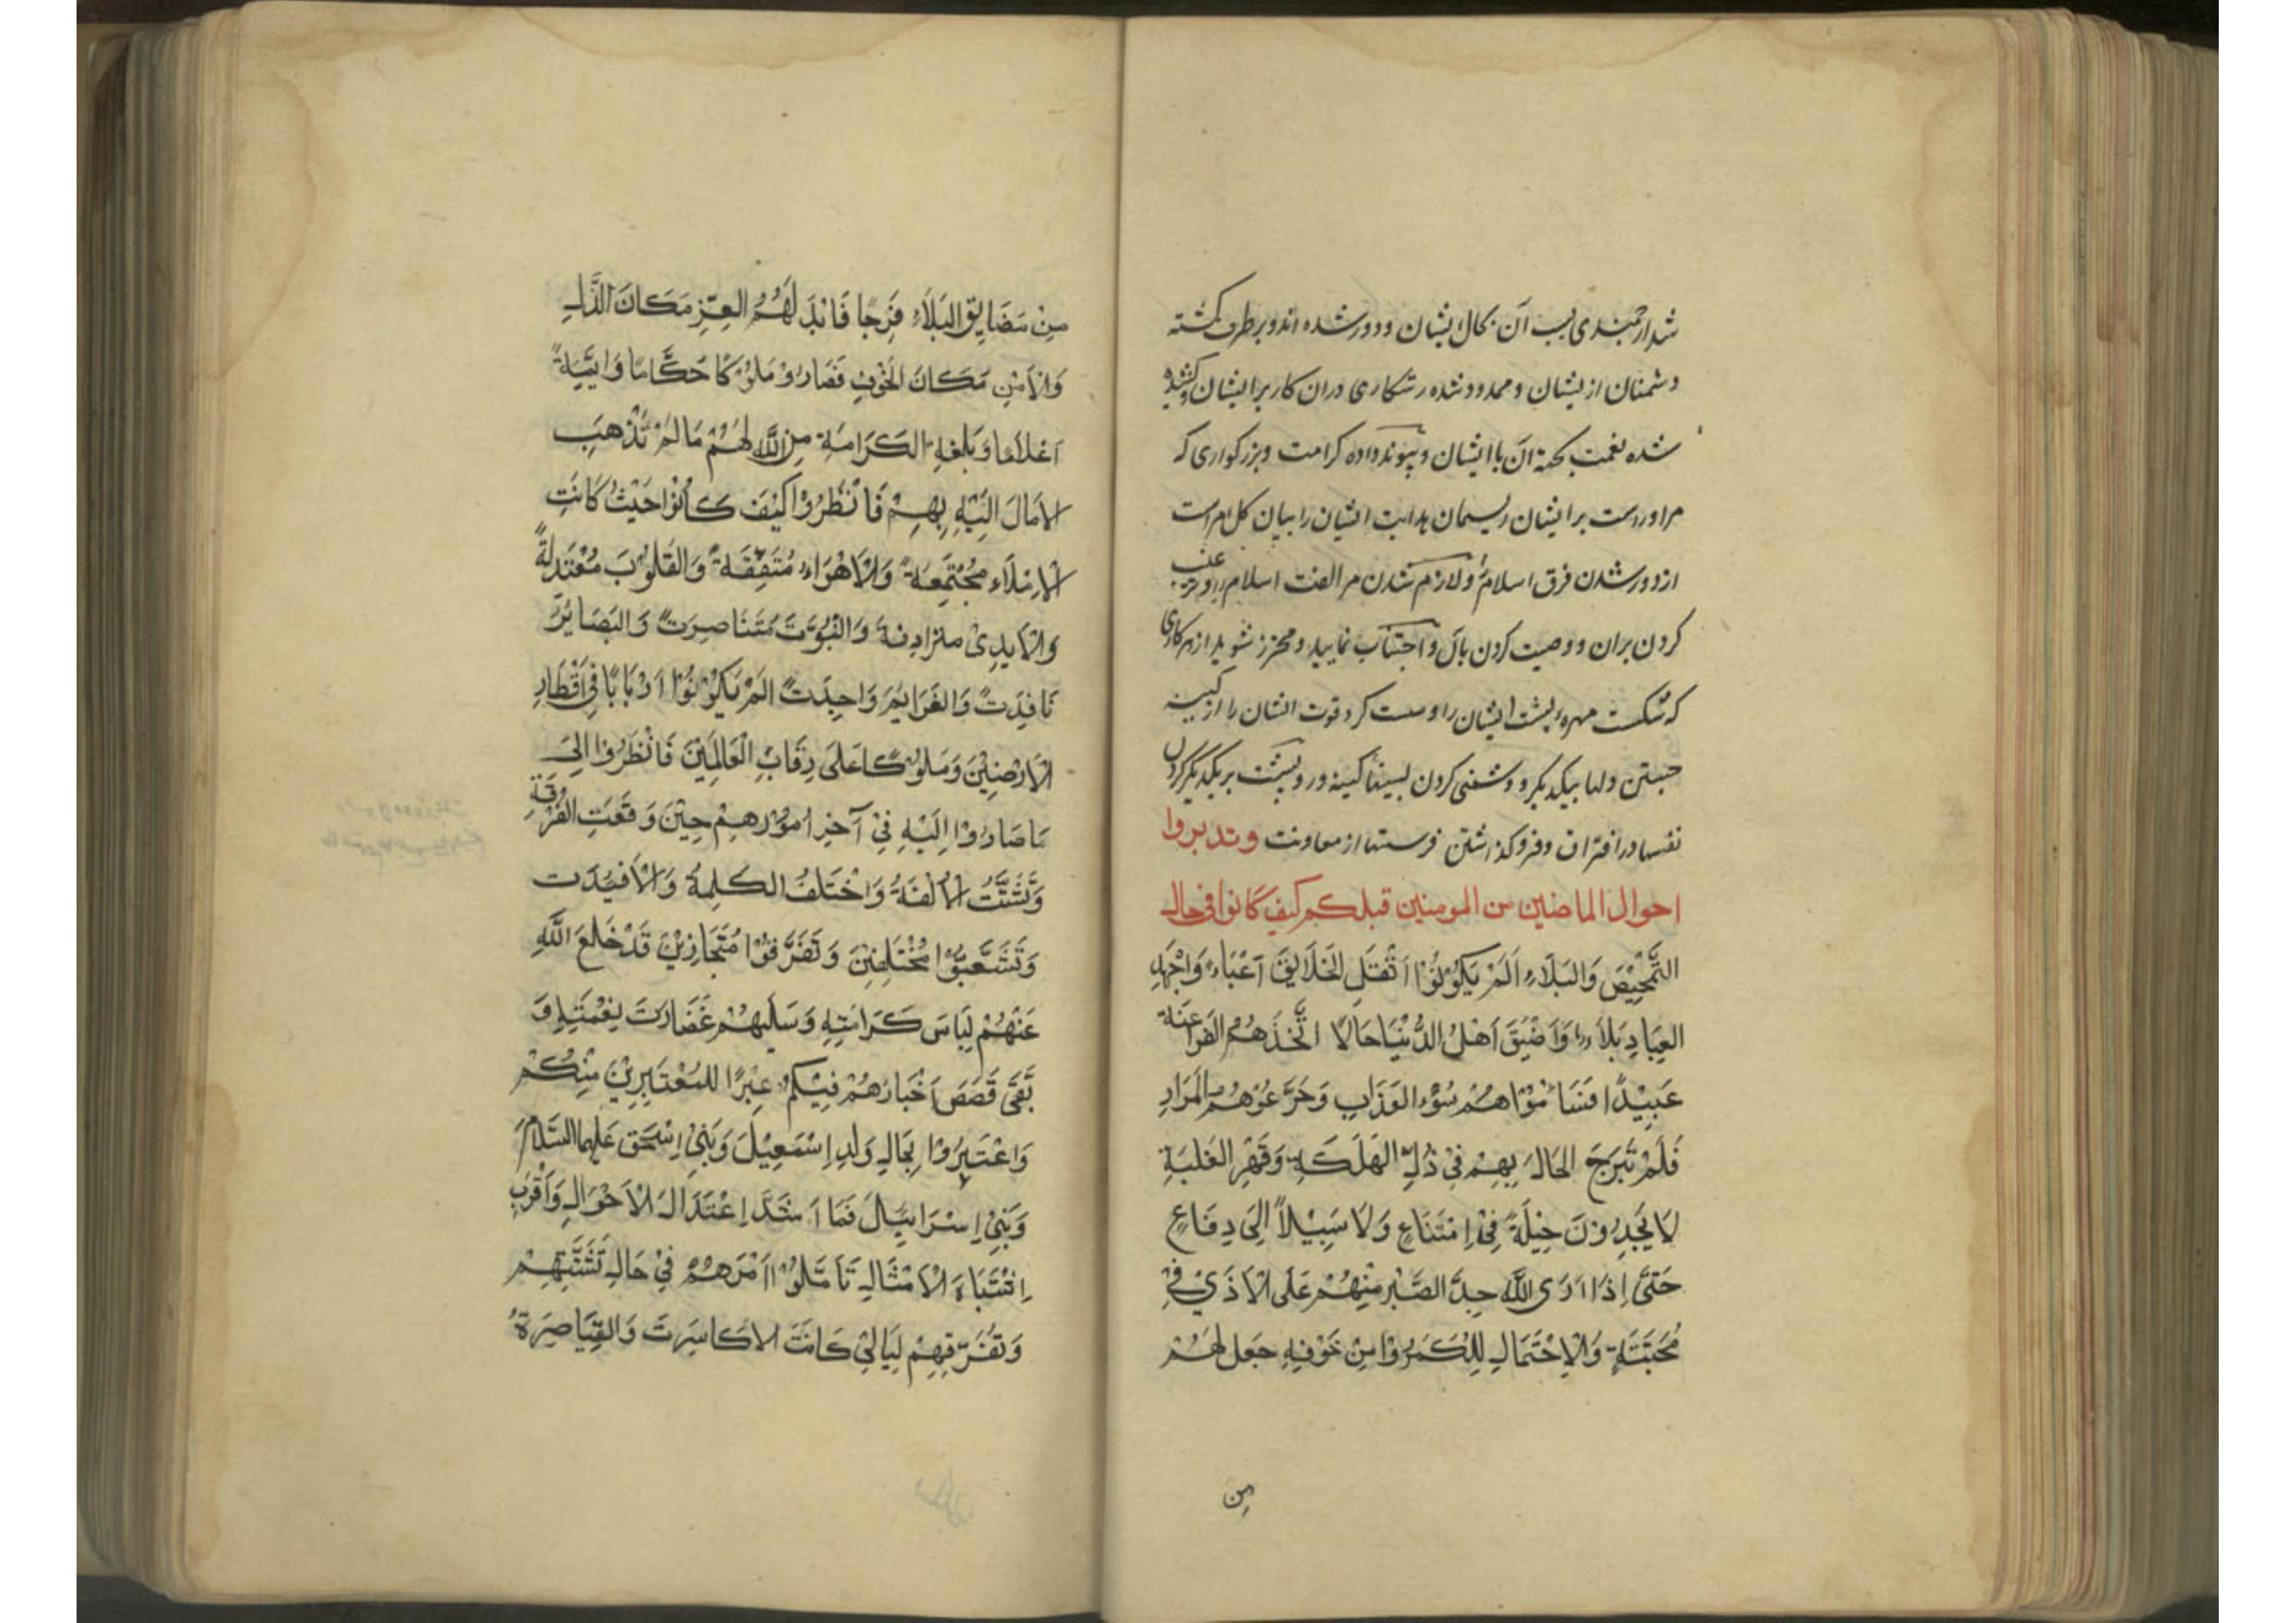 شد ارجمندی بسبب آن بحال ایشان و دور شده اند و بر طرف گشته
دشمنان از ایشان و ممدود شده رستکاری در ان کار بر ایشان و کشیده
شده نعمت بجهة آن با ایشان و پیوند داده کرامت و بزرکواری که
مر او راست بر ایشان ریسمان هدایت ایشان را بیان کل امر است
از دور شدن فرق اسلام و لازم شدن مر الفت اسلام را و ترغیب
کردن بران و وصیت کردن بآن و اجتناب نمایید و محترز شوید از هر کاری
که شکست مهره پشت ایشان را و سست کرد قوت ایشان را از کینه
جستن دلها بیکدیکر و دشمنی کردن سینها کینه ور و پشت بر یکدیکر کردن
نفسها در افتراق و فرو کذاشتن فرستها از معاونت وتدبروا
احوال الماضین من المومنین قبلکم کیف کانوا فی حال
التَّمْحِیْصِ وَالبَلَآءِ اَلَمْ یَکُوْنُوْا اَثْقَلِ الخَلَایِقَ اَعْبَاءً وَاَجْهَدِ
العِبَادِ بَلاَءً وَاَضْیَقَ اَهْلُ الدُّنْیَا حَالًا اتَّخَذَهُمُ الفَرَاعِنَة
عَبِیْدًا فَسَامُوْاهُمْ سُوْءَ العَذَابِ وَجَرَّعُوْهُمُ المَرَارِ
فَلَمْ تَبْرَحَ الحَالُ بِهِمْ فِیْ ذُلِّ الهَلَکَةِ وَقَهْرِ الغَلَبَةِ
لَا یَجِدُوْنَ حِیْلَةً فِیْ اِمْتَنَاعٍ وَلَا سَبِیْلاً اِلَی دِفَاعٍ
حَتَّی اِذَا اَرَی اللّٰهُ جِدَّ الصَّبْرِ مِنْهُمْ عَلَی الْاَذَیْ فِیْ
مُحَبَّتَةِ وَالْاِحْتَمَالِ لِلْمَکْرُوْا مِنْ خَوْفِهِ جَعَلَ لَهُمْ
مِن
مِنْ مَضَایِقِ البَلَآءِ فَرَجًا فَاَبْدَلَ لَهُمُ العِزِّ مَکَانَ الذُّلِ
وَالْاَمْنِ مَکَانَ الخَوْفِ فَصَارُوْ مُلُوْکًا حُکَّامًا وَاَیِمَّةً
اَعْلَامًا وَبَلَغَةِ الکَرَامَةِ مِنَ اللّٰهِ لَهُمْ مَا لَمْ تَذْهَبَ
الاٰمَالَ اِلَیْهِ بِهِمْ فَانْظُرُوْا کَیْفَ کَانُوْا حَیْثُ کَانَتِ
الْاَمْلَآءِ مُجْتَمِعَةً وَالْاَهْوَاءِ مُتَّفِقَةً وَالقُلُوْبَ مُعْتَدِلَةً
وَالْاَیدِیْ مترادِفةً وَالسُّیُوْفَ مُتَنَاصِرَتً وَالبَصَایِرُ
نَافِذَتً وَالعَزَایِمَ وَاحِدَتً اَلَمْ یَکُوْنُوْا اَرْبَابًا فِیْ اَقْطَارِ
الْاَرْضِیْنَ وَمُلُوْکًا عَلَی رِقَابِ الْعَالَمِیْنَ فَانْظُرُوْا اِلَی
مَا صَارُوْا اِلَیْهِ فِیْ آخِرِ اُمُوْرِهِمْ حِیْنَ وَقَعَتِ الفُرْقَةِ
وَتَشَتَّتَتُ الْاُلْفَةُ وَاخْتَلَفُ الکَلِمةُ وَالْاَفْیِدَت
وَتَشَعَّبُوْا مُخْتَلِفِیْنَ وَتَفَرَّقُوْا مُتَحَارِبِیْنَ قَدْ خَلَعَ اللّٰهُ
عَنْهُمْ لِبَاسَ کَرَامَتِهِ وَسَلَبَهُمْ غَضَارَتَ نِعْمَتِهِ وَ
بَقَّیَ قَصَصَ اَخْبَارَهُمْ فِیْکُمْ عِبْرًا للمُعْتَبِرِیْنَ مِنْکُمْ
وَاعْتَبِرُوْا بِحَالِ وَلَدِ اِسْمَعِیْلَ وَبَنِیْ اِسْحَقَ عَلَیْهِمَا السَّلَامُ
وَبَنِیْ اِسْرَایِئلَ فَمَا اَشَدَّ اِعْتَدَالَ الْاَحْوَالِ وَاَقْرَبَ
اِشْتَبَاهَ الْاَمْثَالِ تَاَمَّلُوْا اَمْرَهُمْ فِیْ حَالِ تَشَتُّتِهِمْ
وَتَفَرُّقِهِمْ لَیَالِیْ کَانَتَ الاَکَاسِرَتَ وَالقَیَاصِرَةُ